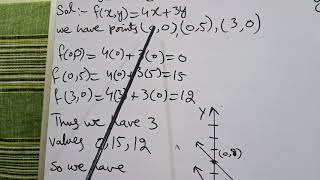 Sol:- f(x,y)=4x+3y
we have points (0,0),(0,5),(3,0)
f(0,0)=4(0)+3(0)=0
f(0,5)=4(0)+3(5)=15
f(3,0)=4(3)+3(0)=12
Thus we have 3
values 0,15,12
So we have
Y